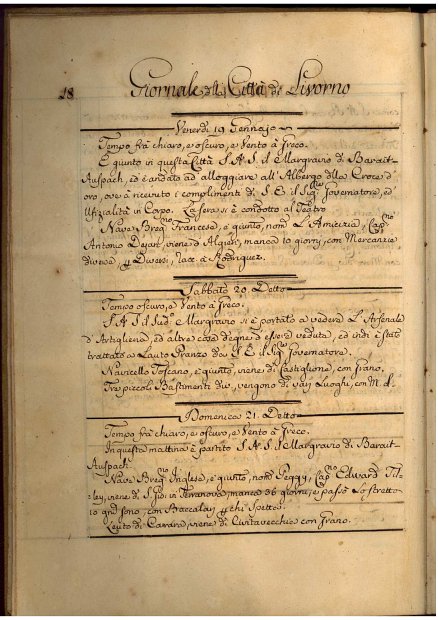 18
Giornale della Città di Livorno
Venerdi 19 Gennajo
Tempo frà chiaro, e oscuro, e Vento à Greco.
È giunto in questa Città S.A.S. il Margravio di Barait-
Auspach, ed è andato ad alloggiare all'Albergo della Croce d'
oro, ove à ricevuto i complimenti di S.E. il Sig.re Governatore, ed
Ufizialità in Corpo. La sera si è condotto al Teatro
Nave Breg.no Francese, è giunto, nom.o L'Amicizia, Cap.no
Antonio Dejan, viene d'Algieri, manca 10 giorni, con Mercanzie
diverse, p Diversi, racc. à Rodriguez.
Sabbato 20. Detto
Tempo oscuro, e Vento à Greco.
S.A.S. il Sud.o Margravio si è portato a vedere L'Arsenale
d'Artiglieria, ed altre cose degne d'essere vedute, ed indi è stato
trattato a Lauto Pranzo da S.E. il Sig.re Governatore.
Navicello Toscano, è giunto, viene di Castiglione, con grano.
Tre piccoli Bastimenti div., vengono di varj Luoghi, con M. d.
Domenica 21. Detto
Tempo frà chiaro, e oscuro, e Vento à Greco.
In questa mattina è partito S.A.S. il Margravio di Barait-
Auspach.
Nave Breg.no Inglese, è giunto, nom.o Peggy, Cap.no Edward Til-
ley, viene di S. Gio: in Terranova, manca 36 giorni, e passò Lo Stretto
10 g.ni sono, con Baccalay p chi spetta.
Leuto di Carraro, viene di Civitavecchia con grano.